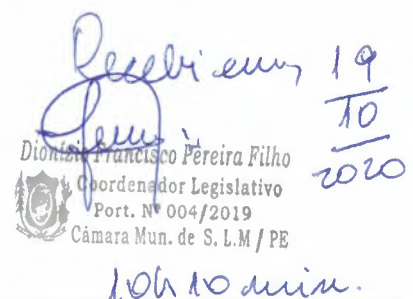 Recebi em, 19
10
2020
Dionízio Francisco Pereira Filho
Coordenador Legislativo
Port. Nº 004/2019
Câmara Mun. de S. L.M / PE
10h10 min.